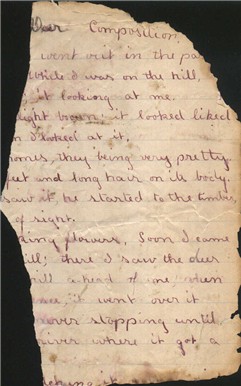 Composition
went out in the pa
while I was on the hill,
it looking at me.
ight brown; it looked liked
n I looked at it.
horns, they being very pretty
feet and long hair on its body.
saw it, he started to the timber,
of sight.
king flowers. Soon I came
ill; there I saw the deer
still ahead of me when
me, it went over it
never stopping until
river where it got a